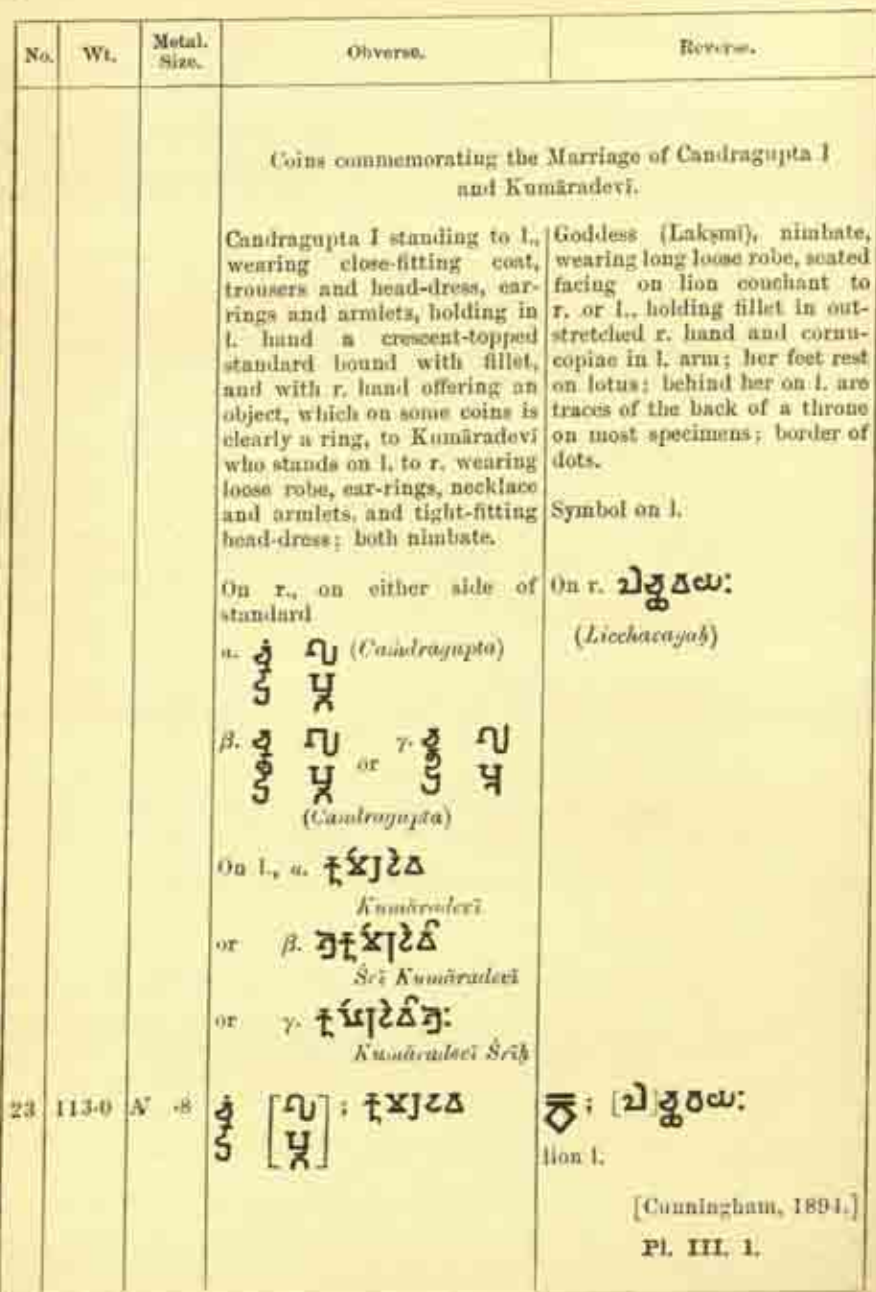 No. Wt. Metal. Size. Obverse. Reverse.
Coins commemorating the Marriage of Candragupta I
and Kumāradevī.
Candragupta I standing to l.,
wearing close-fitting coat,
trousers and head-dress, ear-
rings and armlets, holding in
l. hand a crescent-topped
standard bound with fillet,
and with r. hand offering an
object, which on some coins is
clearly a ring, to Kumāradevī
who stands on l. to r. wearing
loose robe, ear-rings, necklace
and armlets, and tight-fitting
head-dress; both nimbate.
On r., on either side of
standard
α. (Caṁdragupta)
β. or γ.
(Caṁdragupta)
On l., α.
Kumāradevī
or β.
Śrī Kumāradevī
or γ.
Kumāradevī Śrīḥ
Goddess (Lakṣmī), nimbate,
wearing long loose robe, seated
facing on lion couchant to
r. or l., holding fillet in out-
stretched r. hand and cornu-
copiae in l. arm; her feet rest
on lotus; behind her on l. are
traces of the back of a throne
on most specimens; border of
dots.
Symbol on l.
On r.
(Licchavayaḥ)
23 113·0 N ·8
lion l.
[Cunningham, 1894.]
Pl. III. 1.